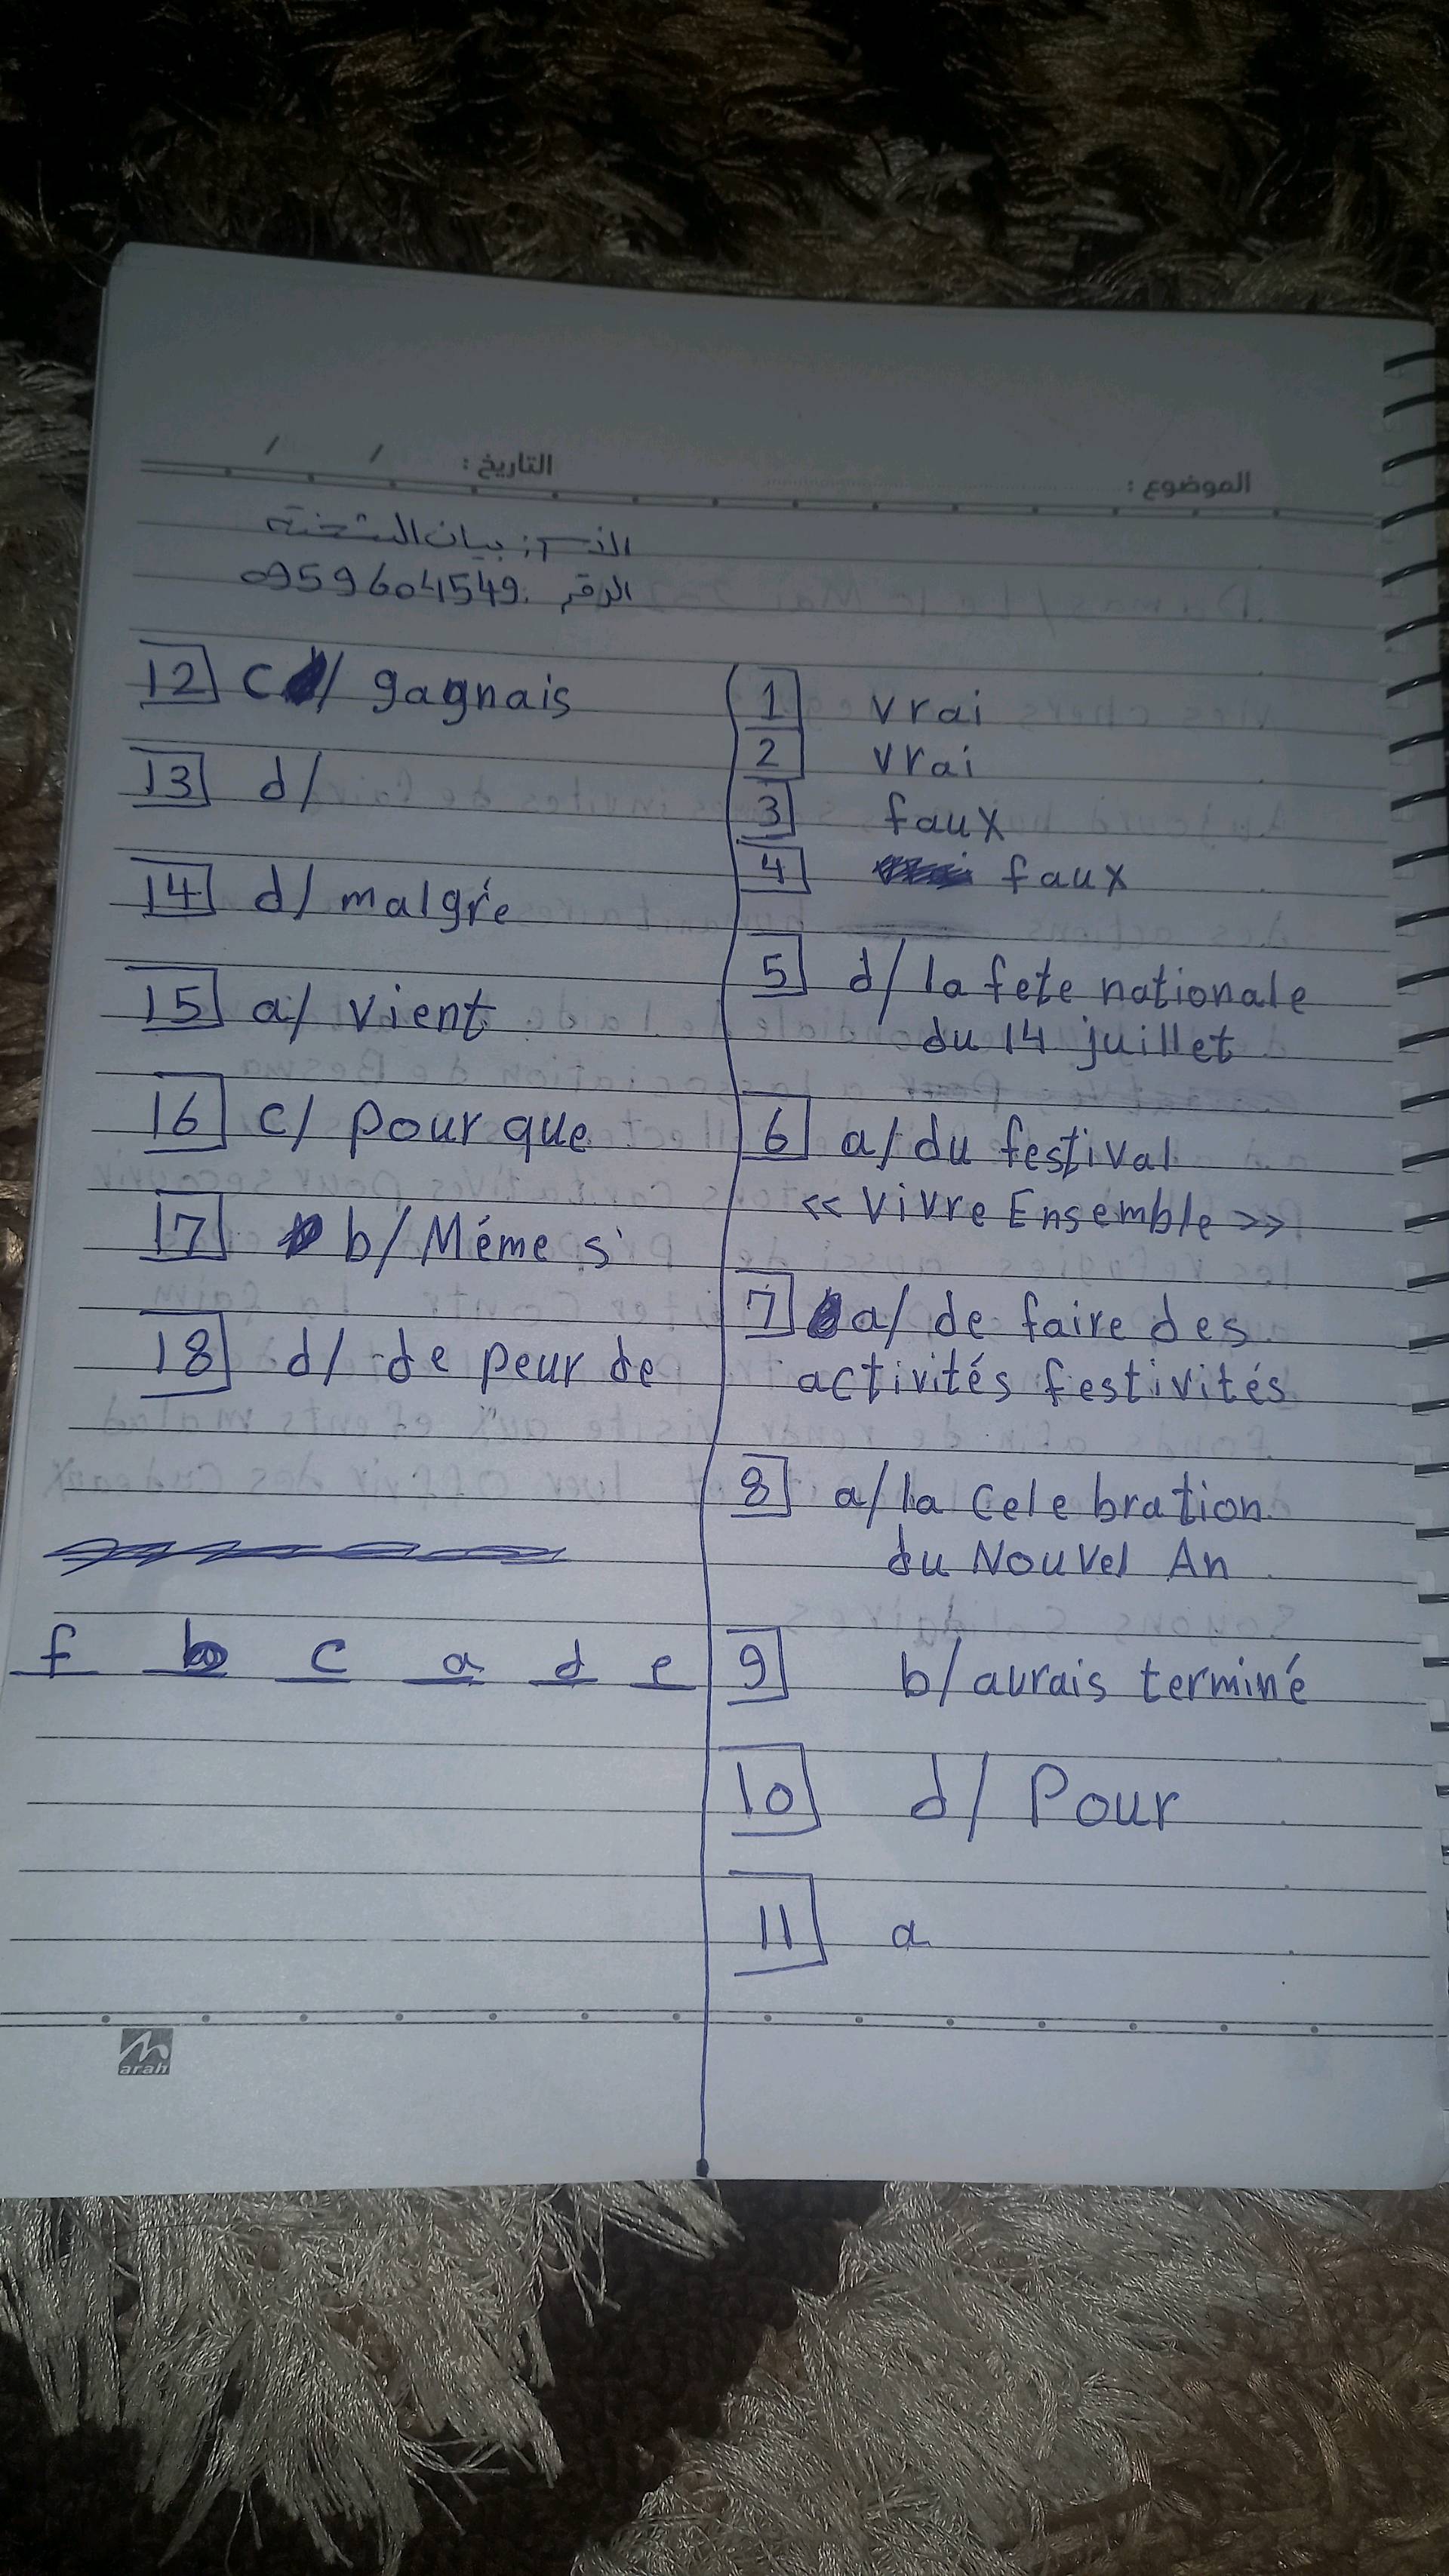 الموضوع : التاريخ : / /
الاسم: بيان
الرقم: 0959604549
1 vrai
2 vrai
3 faux
4 faux
5 d/ la fete nationale
du 14 juillet
6 a/ du festival
<< Vivre Ensemble >>
7 a/ de faire des
activités festivités
8 a/ la Celebration
du Nouvel An
9 b/ aurais terminé
10 d/ Pour
11 a
12 c/ gagnais
13 d/
14 d/ malgré
15 a/ vient
16 c/ pour que
17 b/ Méme si
18 d/ de peur de
f b c a d e
arah